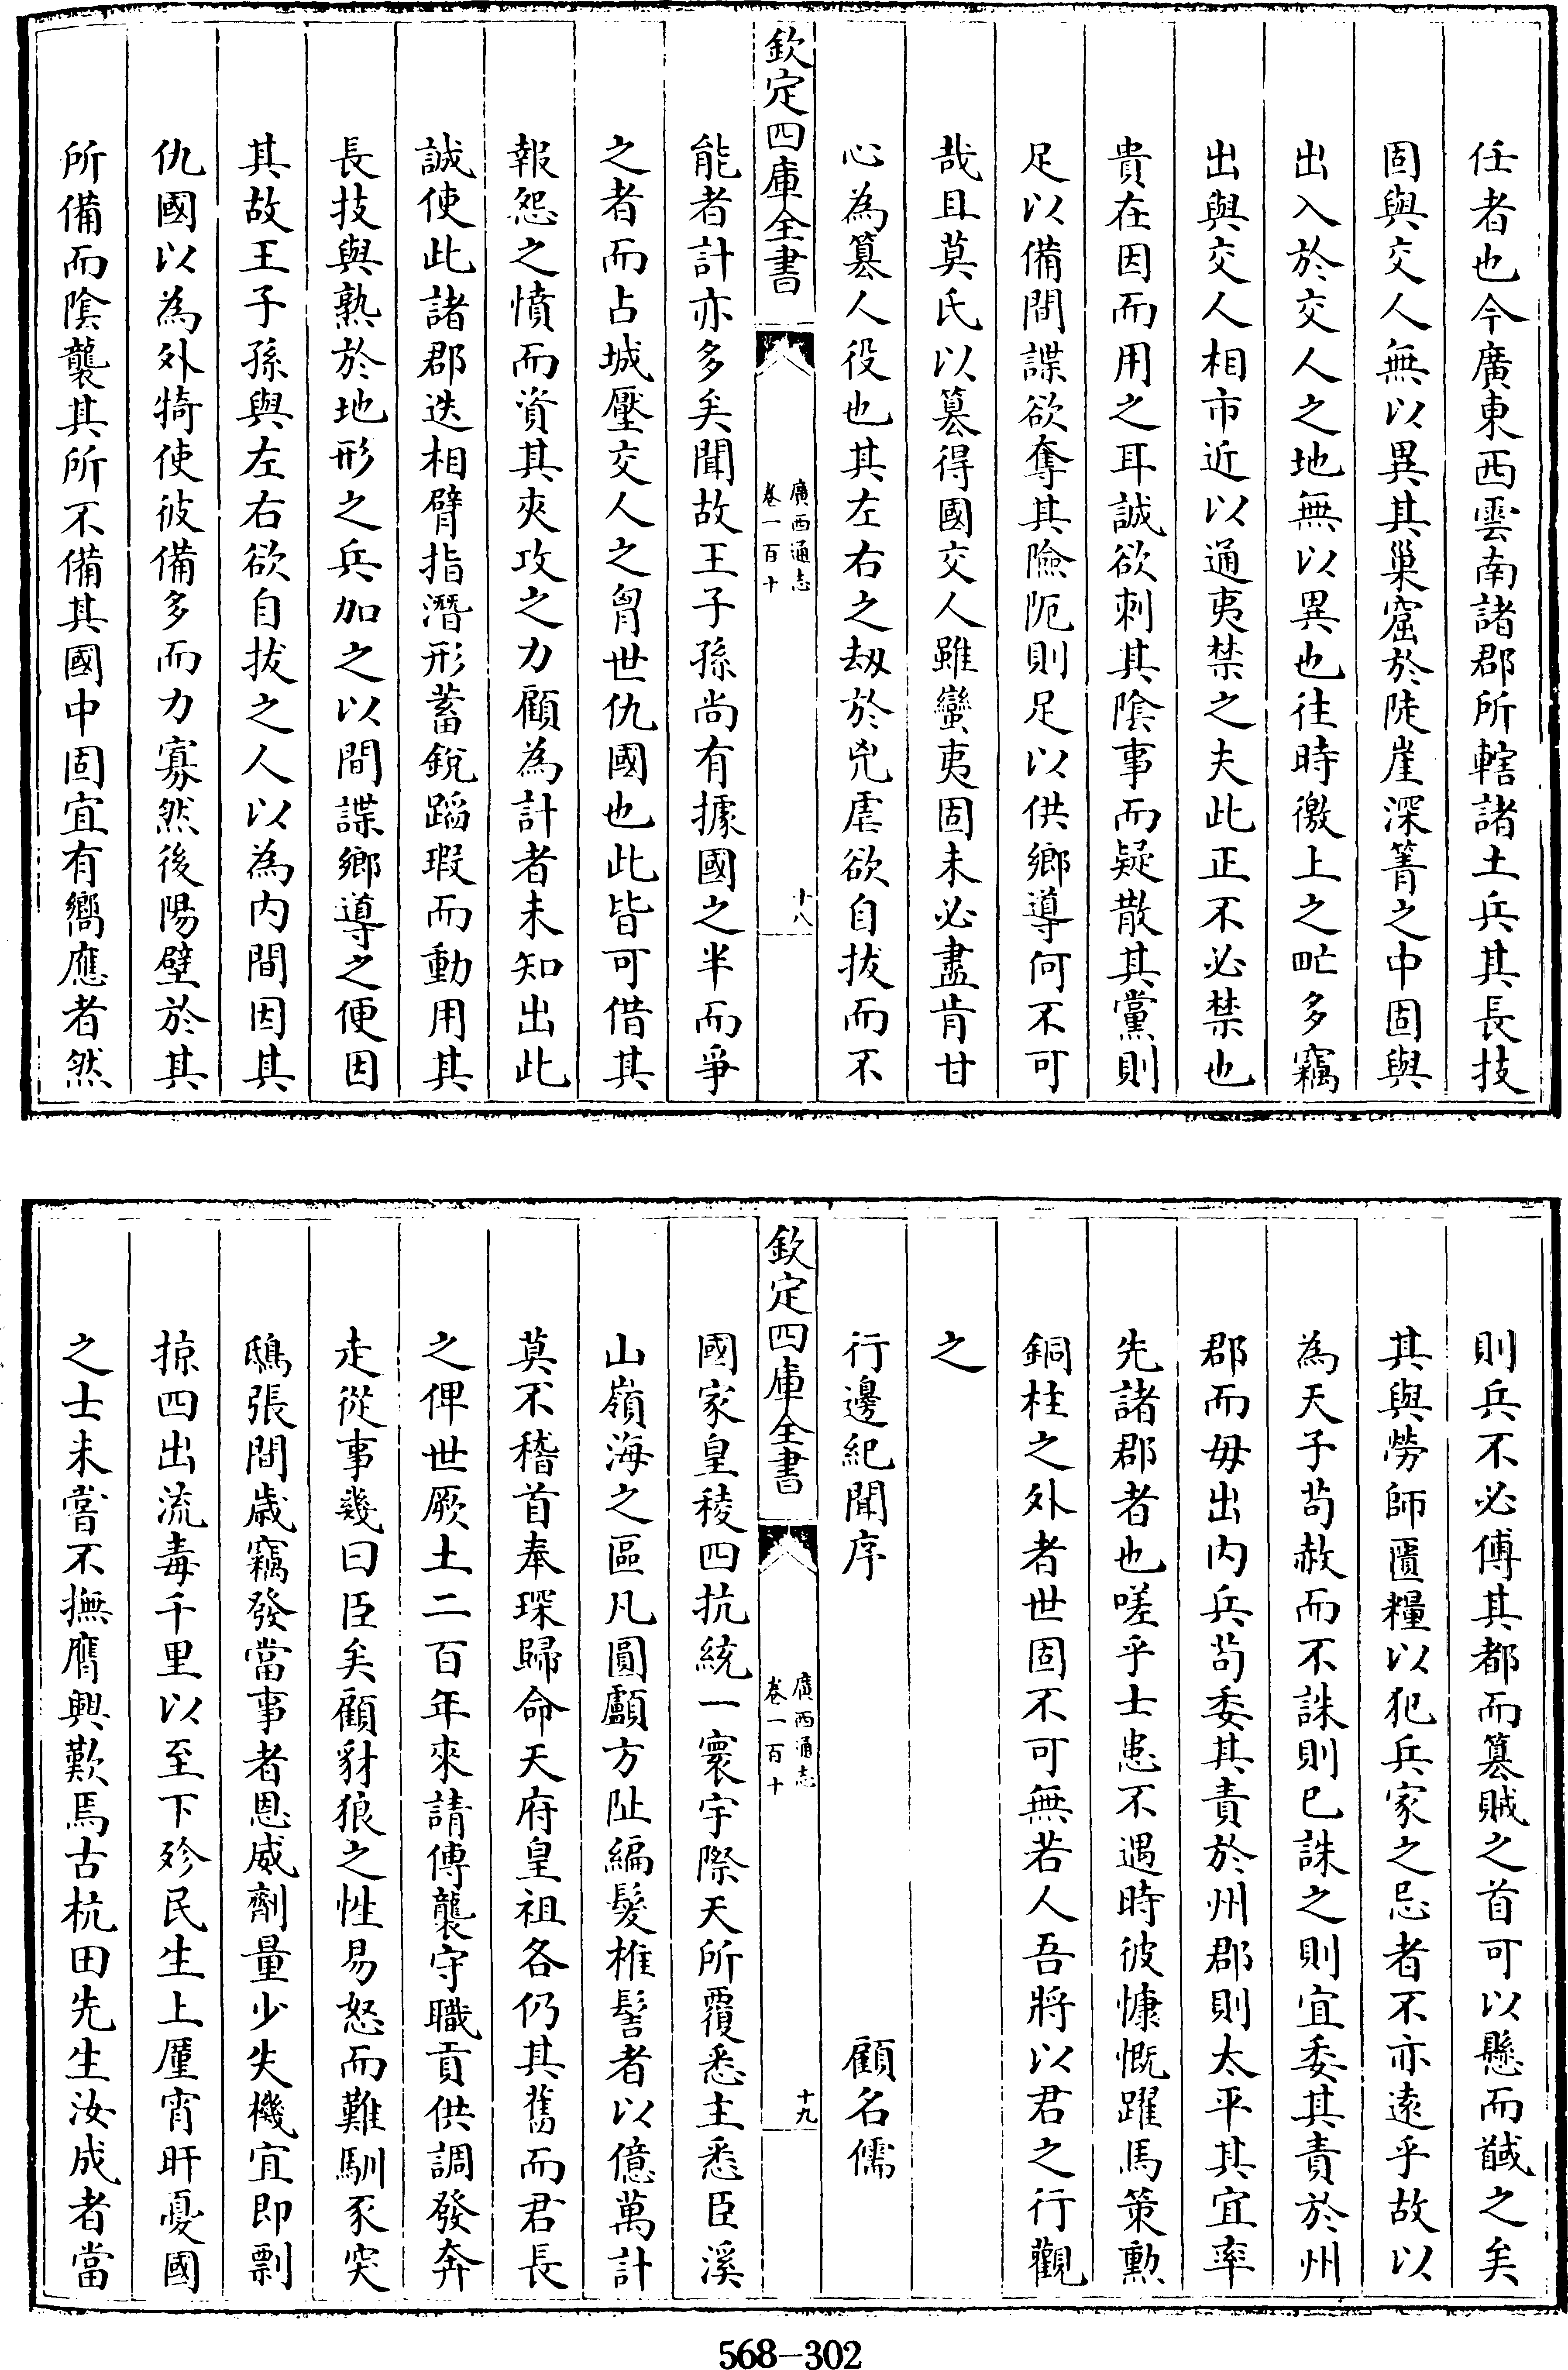 任者也今廣東西雲南諸郡所轄諸土兵其長技
固與交人無以異其巢窟於陡崖深箐之中固與
出入於交人之地無以異也往時徼上之甿多竊
出與交人相市近以通夷禁之夫此正不必禁也
貴在因而用之耳誠欲刺其陰事而疑散其黨則
足以備間諜欲奪其險阨則足以供鄉導何不可
哉且莫氏以篡得國交人雖蠻夷固未必盡肯甘
心為篡人役也其左右之刼於兇虐欲自拔而不
欽定四庫全書
廣西通志
卷一百十
十八
能者計亦多矣聞故王子孫尚有據國之半而爭
之者而占城壓交人之胷世仇國也此皆可借其
報怨之憤而資其夾攻之力顧為計者未知出此
誠使此諸郡迭相臂指潛形蓄銳蹈瑕而動用其
長技與熟於地形之兵加之以間諜鄉導之便因
其故王子孫與左右欲自拔之人以為内間因其
仇國以為外犄使彼備多而力寡然後陽壁於其
所備而陰襲其所不備其國中固宜有嚮應者然
則兵不必傅其都而篡賊之首可以懸而馘之矣
其與勞師匱糧以犯兵家之忌者不亦遠乎故以
為天子茍赦而不誅則已誅之則宜委其責於州
郡而毋出内兵茍委其責於州郡則太平其宜率
先諸郡者也嗟乎士患不遇時彼慷慨躍馬策勳
銅柱之外者世固不可無若人吾將以君之行觀
之
行邊紀聞序 顧名儒
欽定四庫全書
廣西通志
卷一百十
十九
國家皇稜四抗統一寰宇際天所覆悉主悉臣溪
山嶺海之區凡圓顱方趾編髮椎髻者以億萬計
莫不稽首奉琛歸命天府皇祖各仍其舊而君長
之俾世厥土二百年來請傅襲守職貢供調發奔
走從事幾曰臣矣顧豺狼之性易怒而難馴豕突
鴟張間歳竊發當事者恩威劑量少失機宜即剽
掠四出流毒千里以至下殄民生上厪宵旰憂國
之士未嘗不撫膺興歎焉古杭田先生汝成者當
568-302